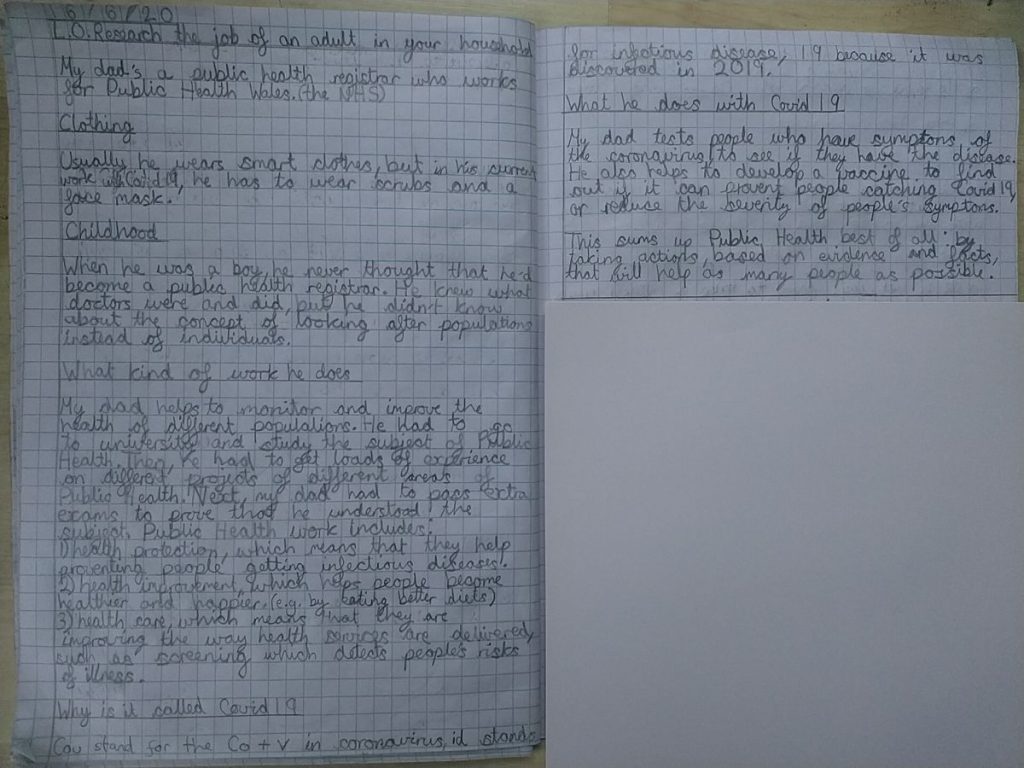 6/16/20
L.O: Research the job of an adult in your household
My dad's a public health registrar who works
for Public Health Wales. (the NHS)
Clothing
Usually he wears smart clothes, but in his current
work with Covid 19, he has to wear scrubs and a
face mask.
Childhood
When he was a boy, he never thought that he'd
become a public health registrar. He knew what
doctors were and did, but he didn't know
about the concept of looking after populations
instead of individuals.
What kind of work he does
My dad helps to monitor and improve the
health of different populations. He had to go
to university and study the subject of Public
Health. Then, he had to get loads of experience
on different projects of different areas of
Public Health. Next, my dad had to pass extra
exams to prove that he understood the
subject. Public Health work includes:
1) health protection, which means that they help
preventing people getting infectious diseases.
2) health improvement, which helps people become
healthier and happier. (e.g. by eating better diets)
3) health care, which means that they are
improving the way health services are delivered,
such as screening which detects people's risks
of illness.
Why is it called Covid 19
Cov stand for the Co + v in coronavirus, id stands
for infectious disease, 19 because it was
discovered in 2019.
What he does with Covid 19
My dad tests people who have symptoms of
the coronavirus to see if they have the disease.
He also helps to develop a vaccine to find
out if it can prevent people catching Covid 19,
or reduce the severity of people's symptons.
This sums up Public Health best of all: by
taking actions, based on evidence and facts,
that will help as many people as possible.